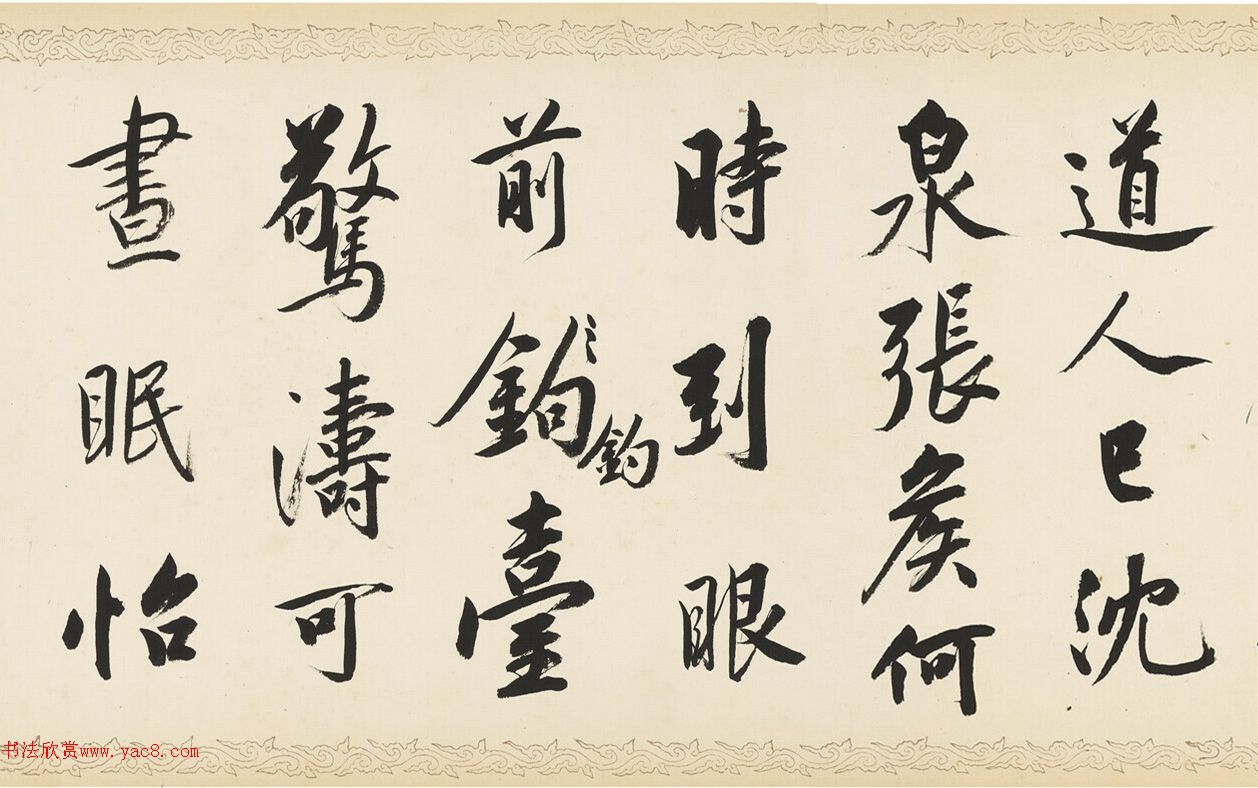 道人已沈
泉張矦何
時到眼
前鉤釣臺
驚濤可
晝眠怡
书法欣赏www.yac8.com